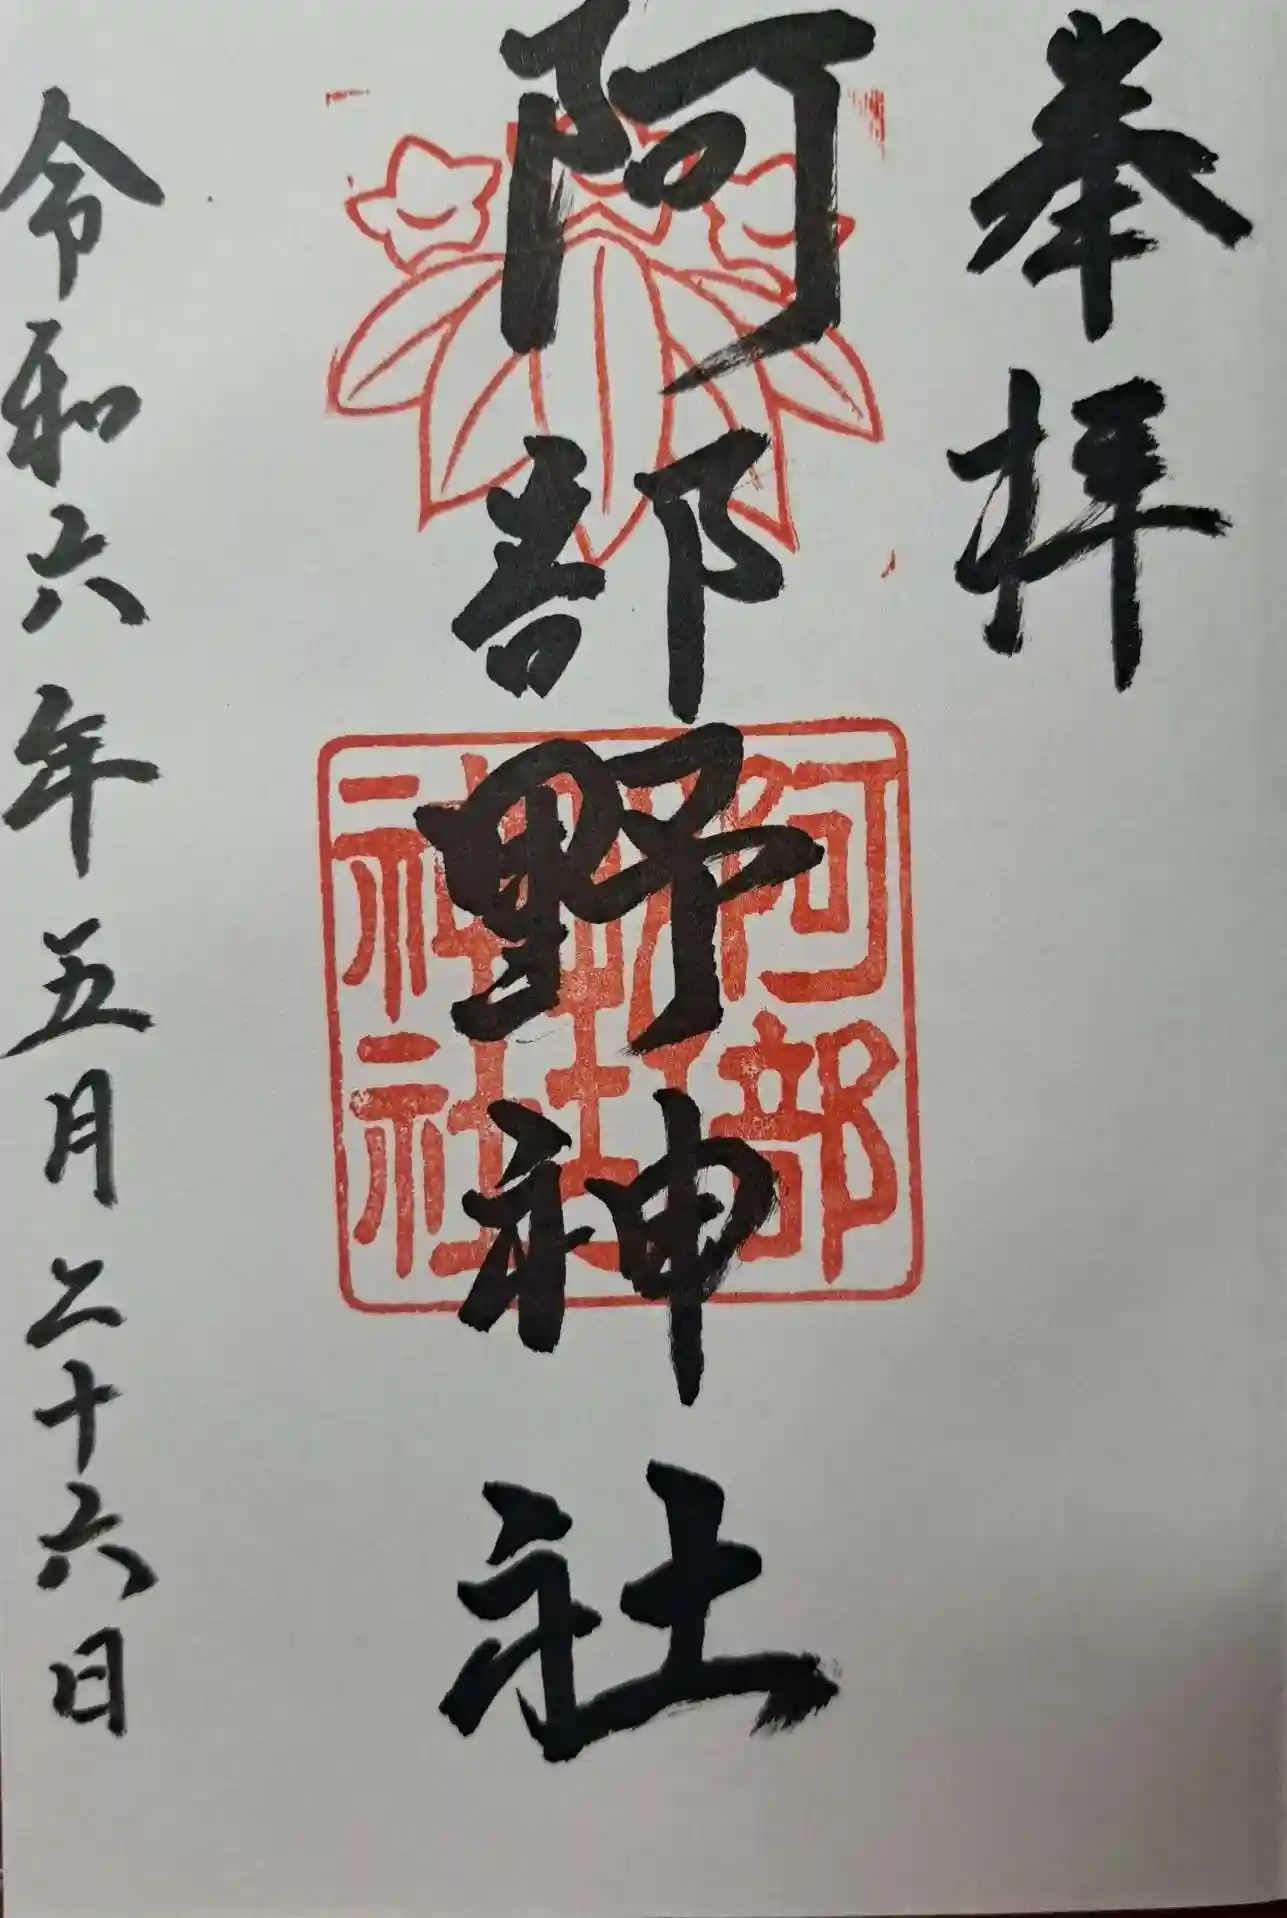 奉拝
阿部野神社
阿部
野
神社
令和六年五月二十六日